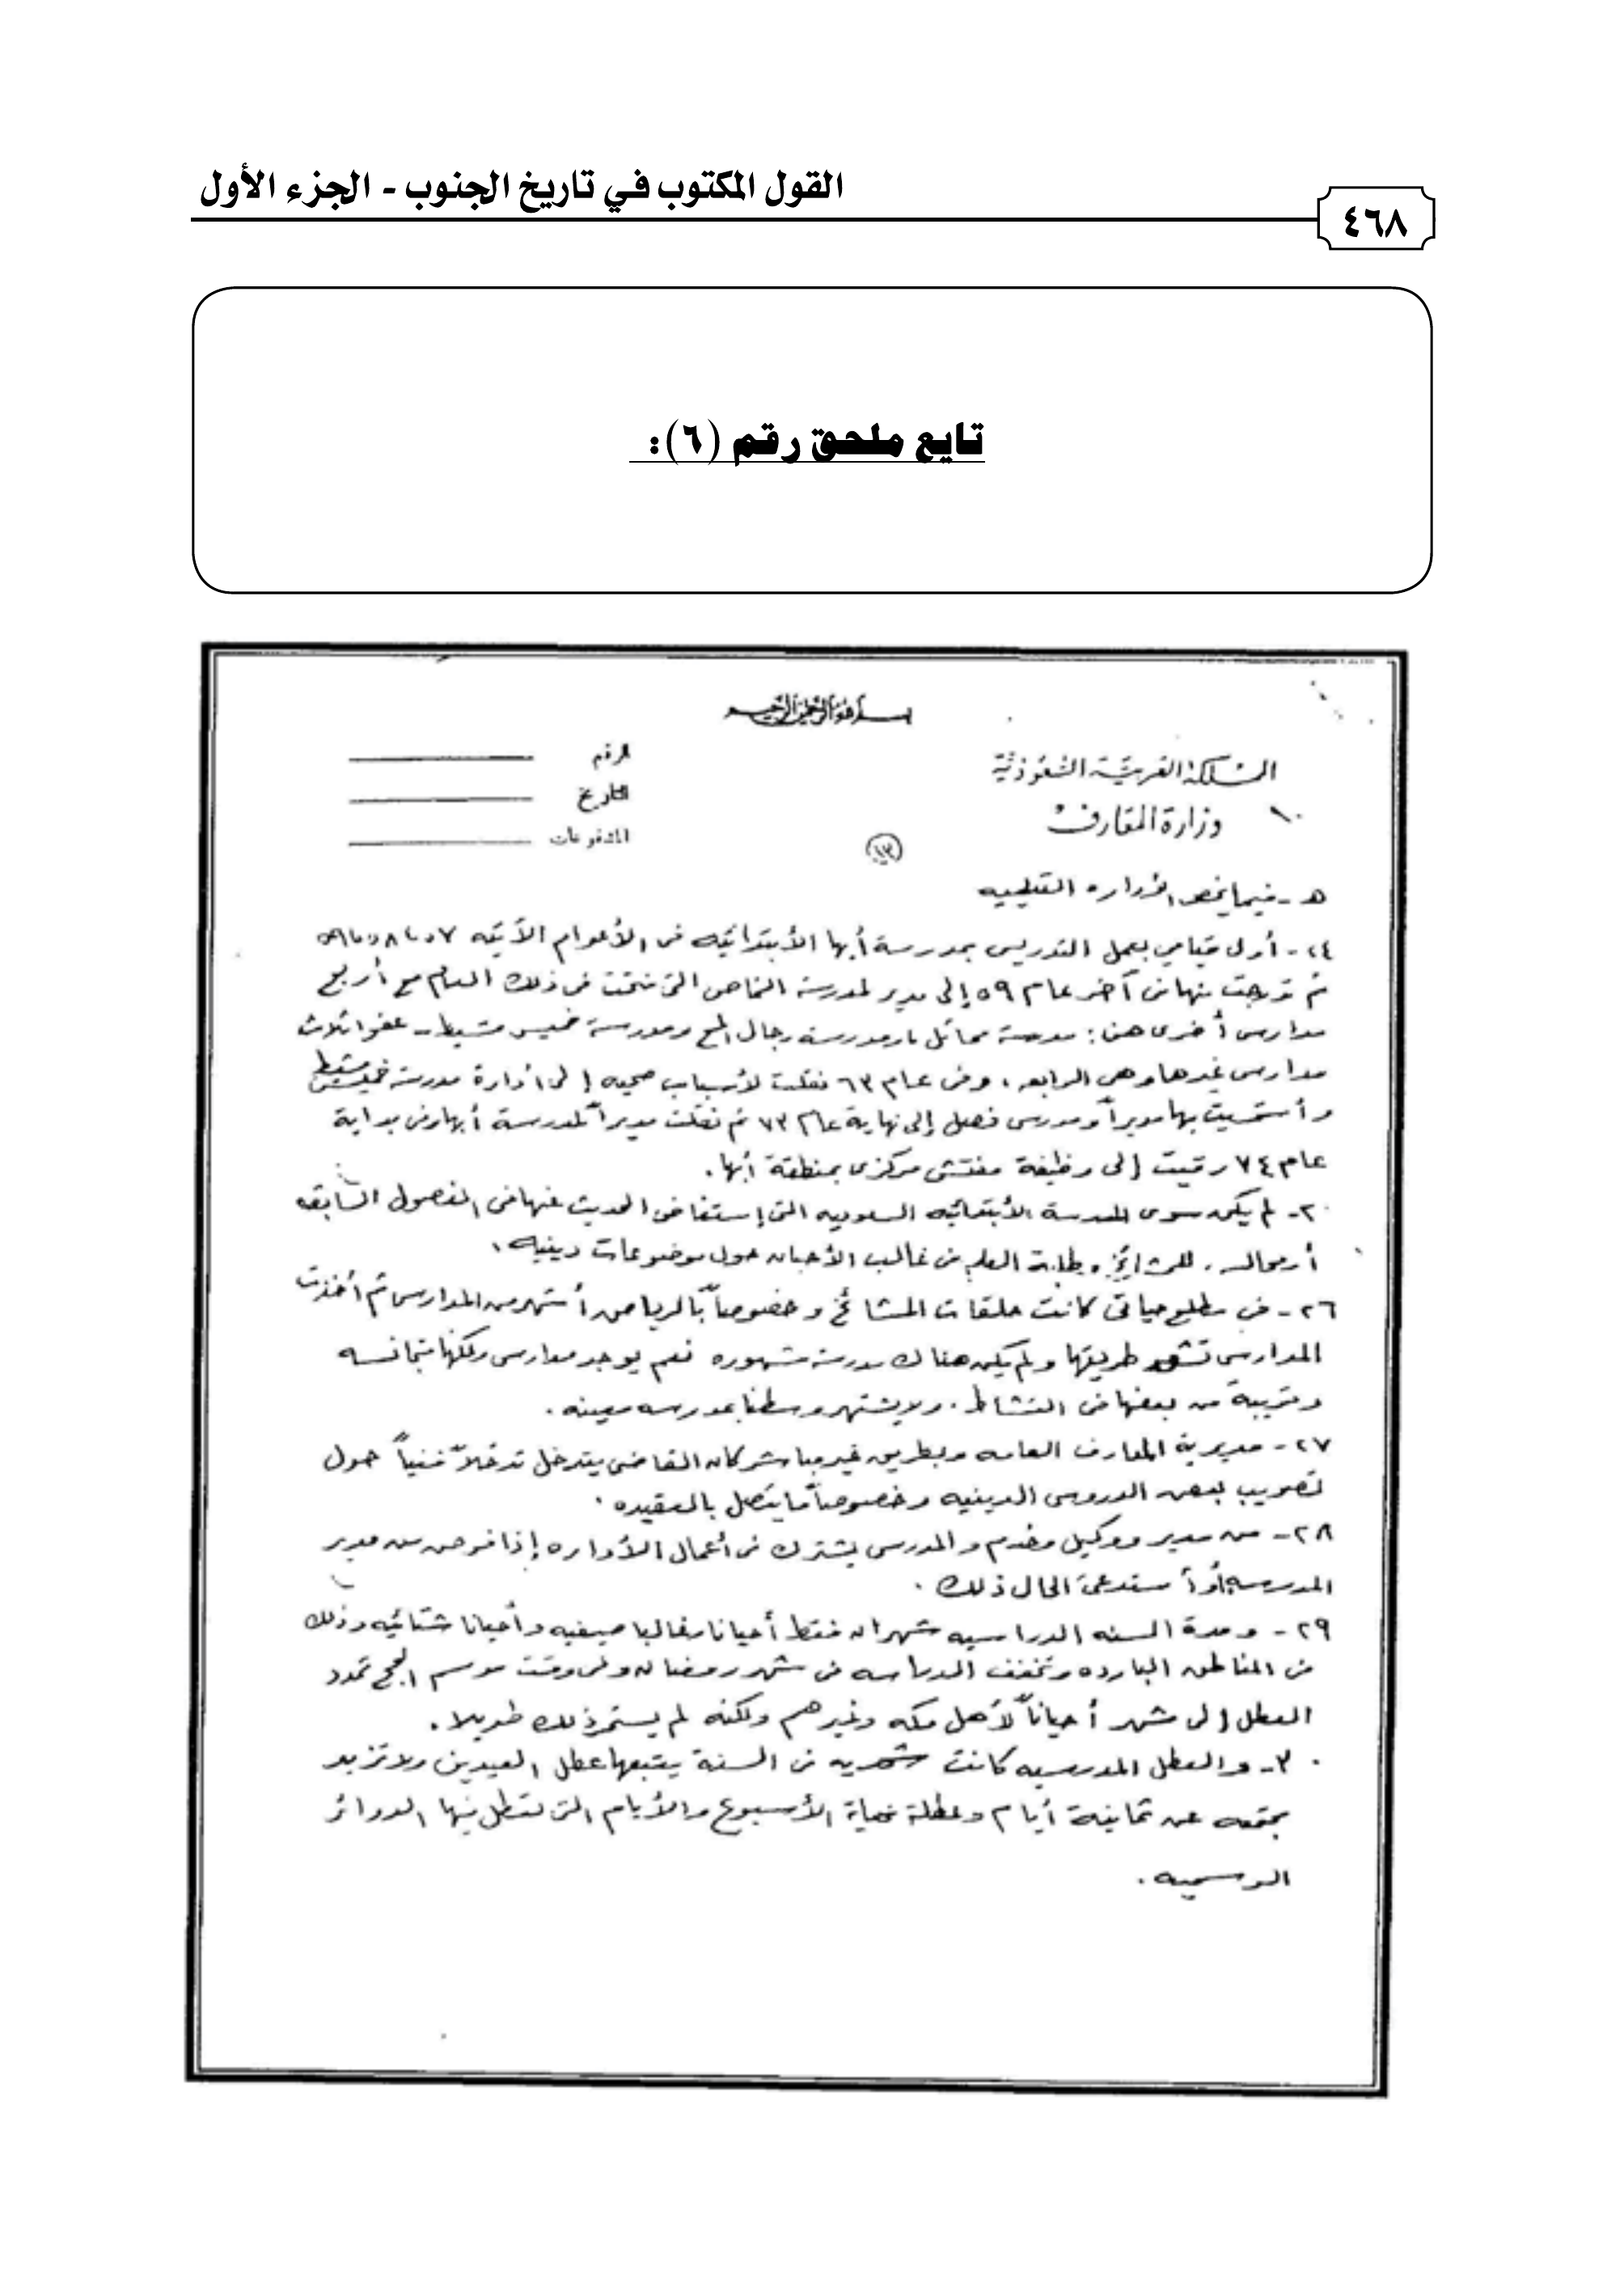 القول المكتوب في تاريخ الجنوب - الجزء الأول
٤٦٨
تابع ملحق رقم (٦):
بسم الله الرحمن الرحيم
المملكة العربية السعودية
وزارة المعارف
الرقم
التاريخ
المشفوعات
١٣
هـ - فيما يخص الإداره التعليميه
٢٤- أول قيامي بعمل التدريس بمدرسة أبها الأبتدائيه في الأعوام الآتيه ٥٧ و ٥٨ و ٥٩
ثم تخرجت منها في آخر عام ٥٩ إلى مدير لمدرسة النماص التي فتحت في ذلك العام مع أربع
مدارس أخرى هن: مدرسة محائل ومدرسة رجال ألمع ومدرسة خميس مشيط - عفوا ثلاث
مدارس غيرها وهي الرابعه، وفي عام ٦٣ نقلت لأسباب صحيه إلى أدارة مدرسة خميس مشيط
وأستمريت بها مديراً ومدرس فصل إلى نهاية عام ٧٣ ثم نقلت مديراً لمدرسة أبها وفي بداية
عام ٧٤ رقيت إلى وظيفة مفتش مركزي بمنطقة أبها.
٢- لم يكن سوى المدرسة الأبتدائيه السعوديه التي إستفاض الحديث عنها في الفصول السابقه
أو مجالس للمشائخ وطلبة العلم في غالب الأحيان حول موضوعات دينيه.
٢٦- في مطلع حياتي كانت حلقات المشائخ وخصوصاً بالرياض أشهر من المدارس ثم أخذت
المدارس تشق طريقها ولم يكن هناك مدرسة مشهوره نعم يوجد مدارس ولكنها متجانسه
وقريبة من بعضها في النشاط. ولا يشتهر وسطنا بمدرسه معينه.
٢٧- مديرية المعارف العامه وبطريق غير مباشر كان القاضي يتدخل تدخلاً فنياً حول
تصويب بعض الدروس الدينيه وخصوصاً ما يتصل بالعقيده.
٢٨- من مدير ووكيل وخدم والمدرس يشترك في أعمال الأداره إذا فوض من مدير
المدرسه أو أستدعى الحال ذلك.
٢٩- ومدة السنه الدراسيه شهران فقط أحيانا وغالبا صيفيه وأحيانا شتائيه وذلك
في المناطق البارده وتخفف الدراسه في شهر رمضان وفي وقت موسم الحج تمدد
العطل إلى شهر أحياناً لأهل مكه وغيرهم ولكنه لم يستمر ذلك طويلا.
٣٠- والعطل المدرسيه كانت شهريه في السنة يتبعها عطل العيدين ولا تزيد
مجتمعه عن ثمانية أيام وعطلة نهاية الأسبوع والأيام التي تعطل فيها الدوائر
الرسميه.